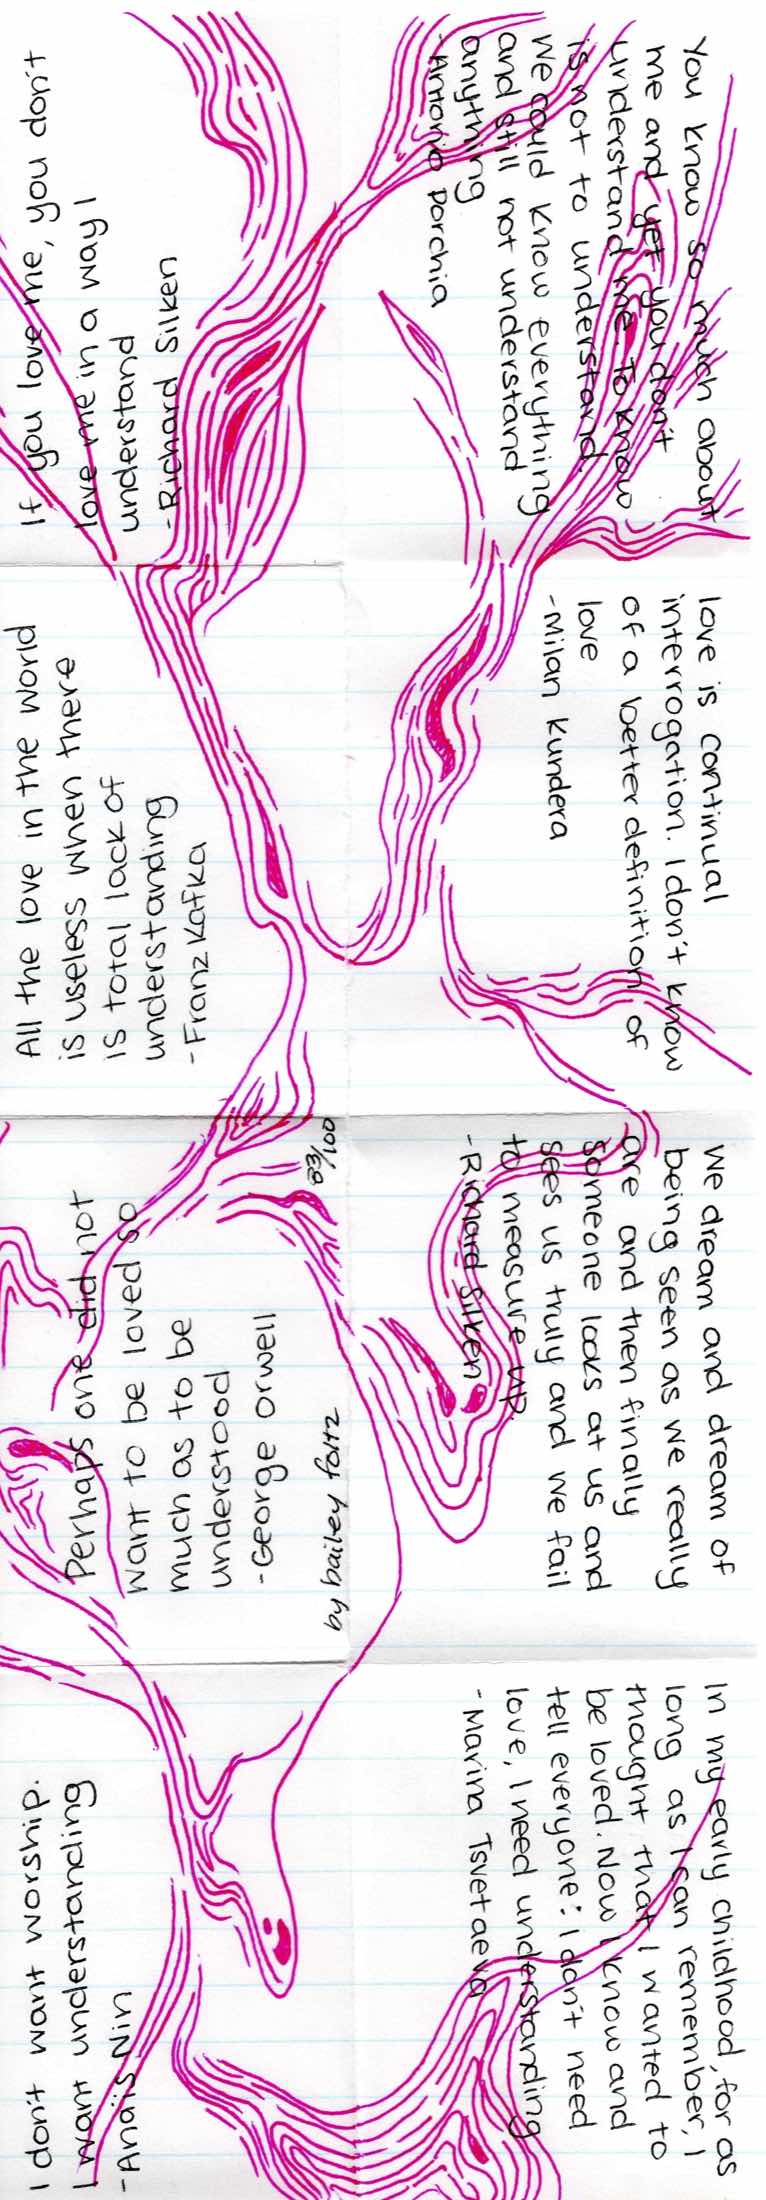 You know so much about
me and yet you don't
understand me. To know
is not to understand.
We could know everything
and still not understand
anything
-Antonio Porchia
love is continual
interrogation. I don't know
of a better definition of
love
-Milan Kundera
we dream and dream of
being seen as we really
are and then finally
someone looks at us and
sees us truly and we fail
to measure up.
-Richard Silken
In my early childhood, for as
long as I can remember, I
thought that I wanted to
be loved. Now I know and
tell everyone: I don't need
love, I need understanding
-Marina Tsvetaeva
If you love me, you don't
love me in a way I
understand
-Richard Silken
All the love in the world
is useless when there
is total lack of
understanding
-Franz Kafka
Perhaps one did not
want to be loved so
much as to be
understood
-George Orwell
by bailey foltz
63/100
I don't want worship.
I want understanding
-Anaïs Nin